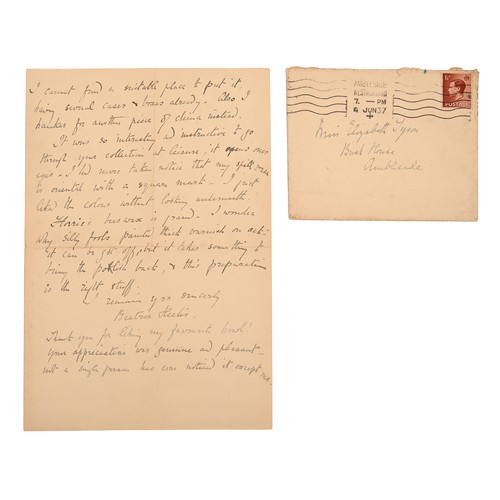 I cannot find a suitable place to put it,
having several cases & boxes already. Also I
hanker for another piece of china instead.
It was so interesting and instructive to go
through your collection at leisure, it opens ones
eyes. I had more taken notice that my
is oriental with a square mark. I just
liked the colour without looking underneath.
beeswax is grand. I wonder
why silly fools painted thick varnish on oak!
It can be got off, but it takes something to
bring the polish back, & this preparation
is the right stuff.
I remain yrs sincerely
Beatrix Heelis.
Thank you for liking my favourite
your appreciation was genuine and pleasant—
not a single person has ever noticed it except me.
AMBLESIDE
WESTMORLAND
7. — PM
6 JUN 37
POSTAGE
Miss Elizabeth Tyson
House
Ambleside